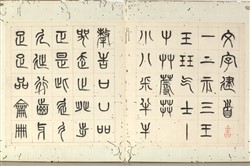 文字建首
一二示三王
玉玨气士丨
屮艸蓐茻
小八釆半牛
犛告口凵吅
哭走止癶步
此正是辵彳
廴㢟行齒牙
足疋品龠冊